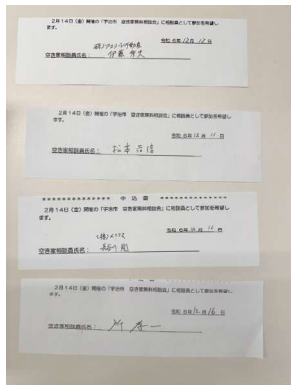 2月14日（金）開催の「宇治市 空き家無料相談会」に相談員として参加を希望し
ます。
令和 6年12月12日
空き家相談員氏名：伊藤
2月14日（金）開催の「宇治市 空き家無料相談会」に相談員として参加を希望し
ます。
令和 6年12月11日
空き家相談員氏名：松本
申 込 書
2月14日（金）開催の「宇治市 空き家無料相談会」に相談員として参加を希望し
ます。
令和 6年 月11日
空き家相談員氏名：長谷川
2月14日（金）開催の「宇治市 空き家無料相談会」に相談員として参加を希望し
ます。
令和 6年12月16日
空き家相談員氏名：